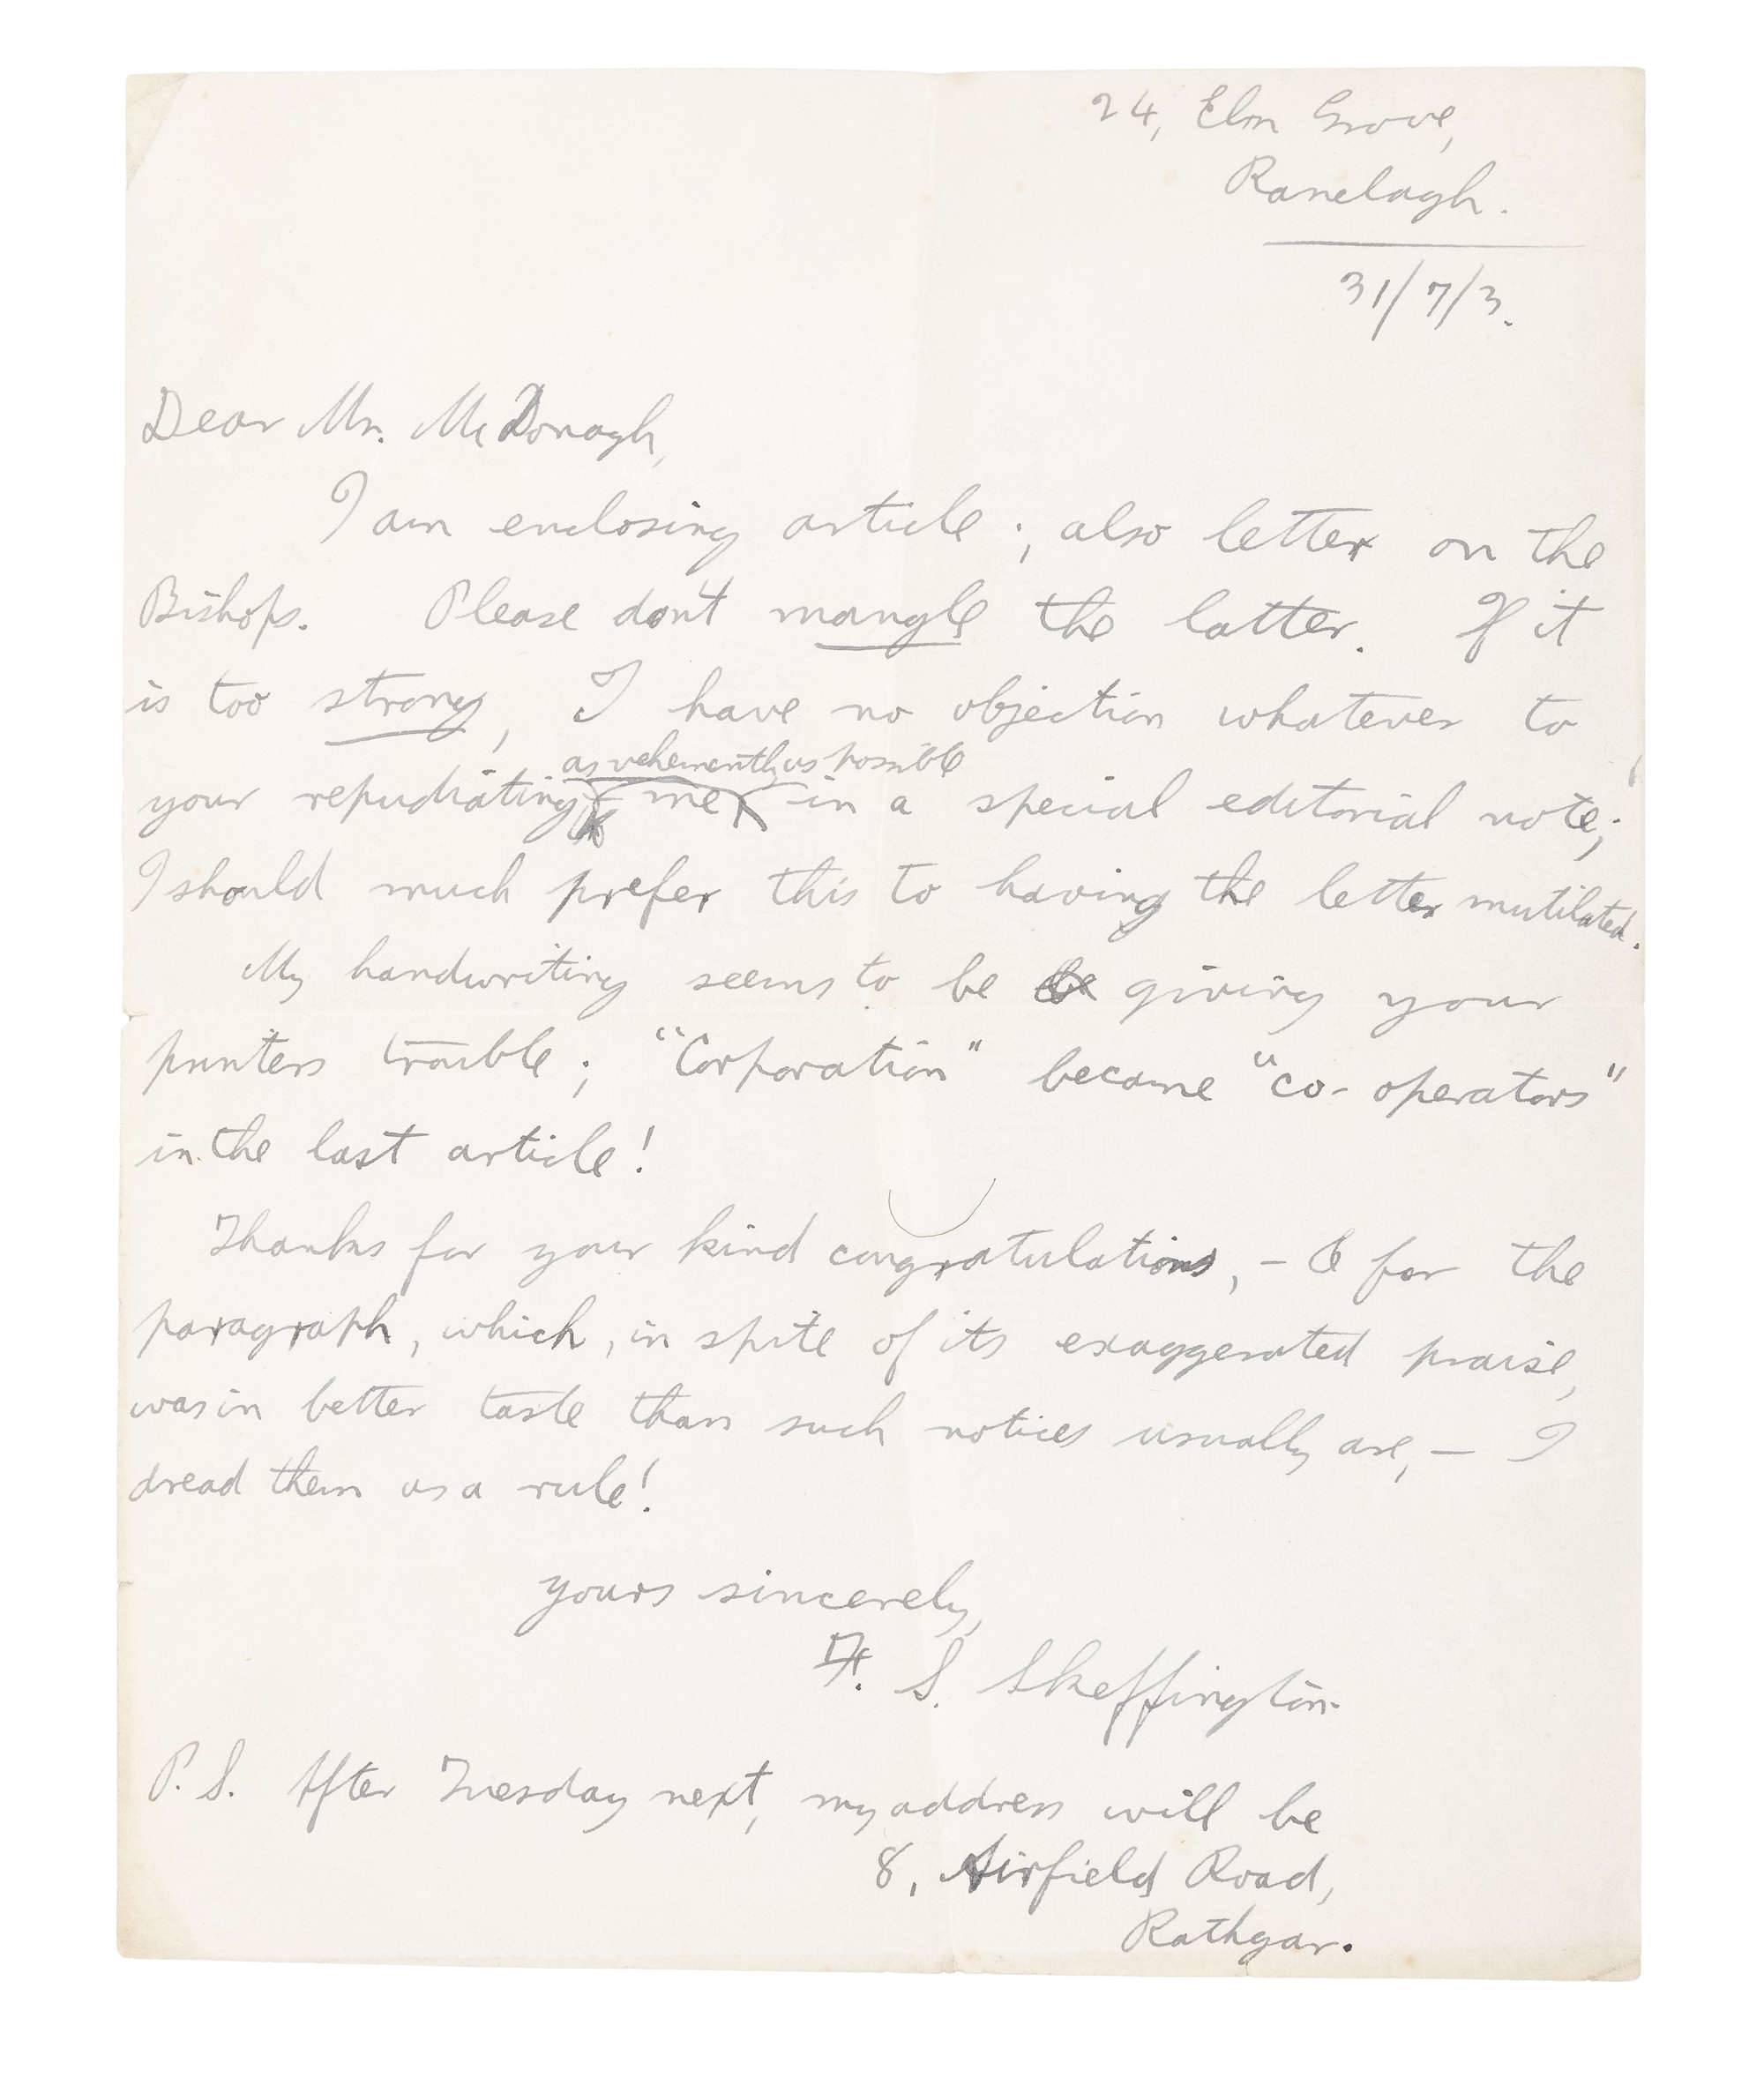 24, Elm Grove,
Ranelagh.
31/7/3.
Dear Mr. McDonagh,
I am enclosing article; also letter on the
Bishops. Please don't mangle the latter. If it
is too strong, I have no objection whatever to
as vehemently as possible
your repudiating me in a special editorial note;
I should much prefer this to having the letter mutilated.
My handwriting seems to be giving your
printers trouble; "Corporation" became "co-operators"
in the last article!
Thanks for your kind congratulations, - & for the
paragraph, which, in spite of its exaggerated praise,
was in better taste than such notices usually are, — I
dread them as a rule!
yours sincerely,
F. S. Skeffington.
P. S. After Tuesday next, my address will be
8, Airfield Road,
Rathgar.